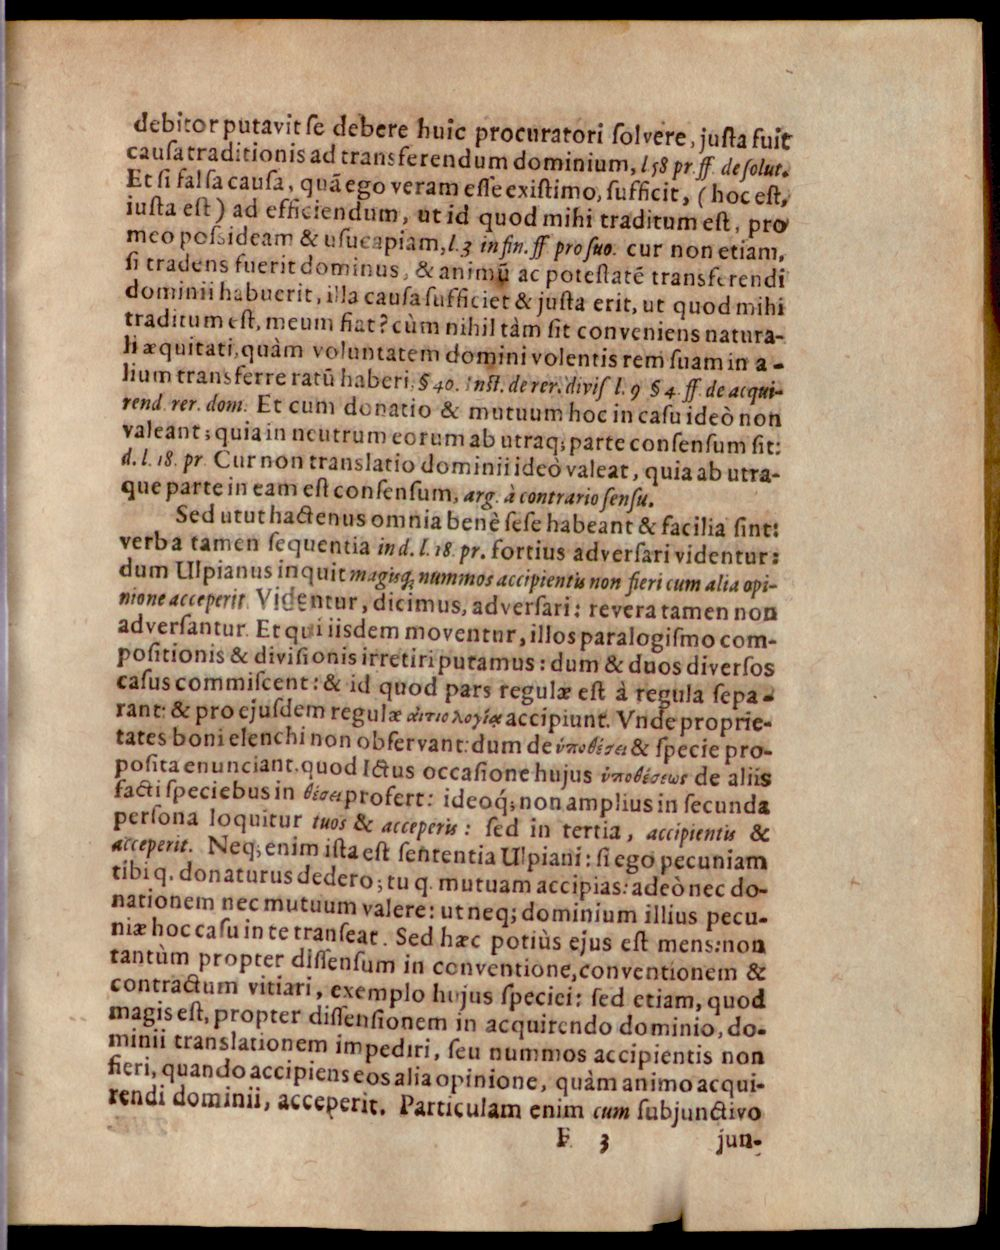 debitor putavit se debere huic procuratori solvere, justa fuit
causa traditionis ad transferendum dominium, l 58 pr. ff. de solut.
Et si falsa causa, quã ego veram esse existimo, sufficit, (hoc est,
iusta est) ad efficiendum, ut id quod mihi traditum est, pro
meo possideam & usucapiam, l. 3 in fin. ff pro suo. cur non etiam,
si tradens fuerit dominus, & animũ ac potestatẽ transferendi
dominii habuerit, illa causa sufficiet & justa erit, ut quod mihi
traditum est, meum fiat? cùm nihil tàm sit conveniens natura-
li æquitati, quàm voluntatem domini volentis rem suam in a-
lium transferre ratũ haberi. § 40. Inst. de rer. divis l. 9 § 4. ff. de acqui-
rend. rer. dom. Et cum donatio & mutuum hoc in casu ideò non
valeant; quia in neutrum eorum ab utraq; parte consensum sit:
d. l. 18. pr Cur non translatio dominii ideò valeat, quia ab utra-
que parte in eam est consensum, arg. à contrario sensu.
Sed utut hactenus omnia benè sese habeant & facilia sint:
verba tamen sequentia in d. l. 18. pr. fortius adversari videntur:
dum Ulpianus inquit magisq; nummos accipientis non fieri cum alia opi-
nione acceperit. Videntur, dicimus, adversari: revera tamen non
adversantur. Et qui iisdem moventur, illos paralogismo com-
positionis & divisionis irretiri putamus: dum & duos diversos
casus commiscent: & id quod pars regulæ est à regula sepa-
rant: & pro ejusdem regulæ αἰτιολογίᾳ accipiunt. Vnde proprie-
tates boni elenchi non observant: dum de ὑποθέσει & specie pro-
posita enunciant, quod ICtus occasione hujus ὑποθέσεως de aliis
facti speciebus in θέσει profert: ideoq́; non amplius in secunda
persona loquitur tuos & acceperis: sed in tertia, accipientis &
acceperit. Neq; enim ista est sententia Ulpiani: si ego pecuniam
tibi q. donaturus dedero; tu q. mutuam accipias: adeò nec do-
nationem nec mutuum valere: ut neq; dominium illius pecu-
niæ hoc casu in te transeat. Sed hæc potiùs ejus est mens: non
tantùm propter dissensum in conventione, conventionem &
contractum vitiari, exemplo hujus speciei: sed etiam, quod
magis est, propter dissensionem in acquirendo dominio, do-
minii translationem impediri, seu nummos accipientis non
fieri, quando accipiens eos alia opinione, quàm animo acqui-
rendi dominii, acceperit. Particulam enim cum subjunctivo
F 3 jun-